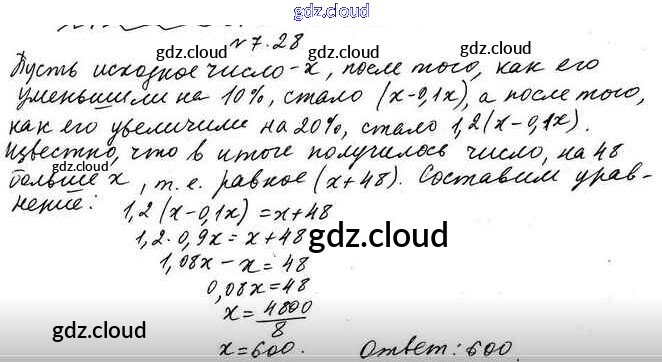 gdz.cloud
№7.28
gdz.cloud gdz.cloud
Пусть исходное число - x, после того, как его
уменьшили на 10%, стало (x-0,1x), а после того,
gdz.cloud gdz.cloud
как его увеличили на 20%, стало 1,2(x-0,1x).
Известно, что в итоге получилось число, на 48
gdz.cloud gdz.cloud
больше x, т.е. равное (x+48). Составим урав-
нение:
1,2(x-0,1x)=x+48
1,2·0,9x=x+48
gdz.cloud
1,08x-x=48
0,08x=48
x=4800/8
gdz.cloud
x=600. Ответ: 600.
gdz.cloud